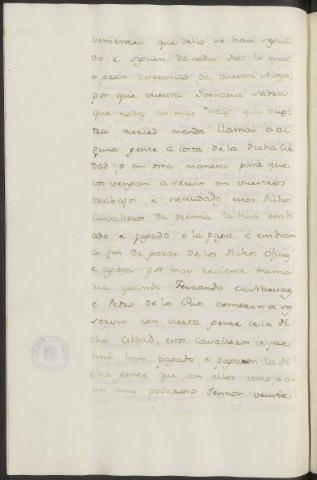 venientes que dello se han segui
do e siguen de cada dia lo qual
es gran deservicio de vuestra Alteza,
por que vuestra Sennoria sabra
que todas las mas veces que vues
tra merced manda llamar a al
guna gente a costa de la dicha Cib
dad, o en otra manera para que
los vengan a servir en vuestros
trabajos e necesidades estos dichos
Cavalleros de premia la han embi
ado, e pagado e la pagan, e embian
a fin de gozar de los dichos oficios
e agora por mas reciente memo
ria quando Fernando
e Pedro de los Rios vinieron a vos
servir con cierta gente de la di
cha Cibdad, estos Cavalleros de pre
mia han pagado e pagaron la di
cha gente que con ellos vino, e a
un muy poderoso Sennor veinte